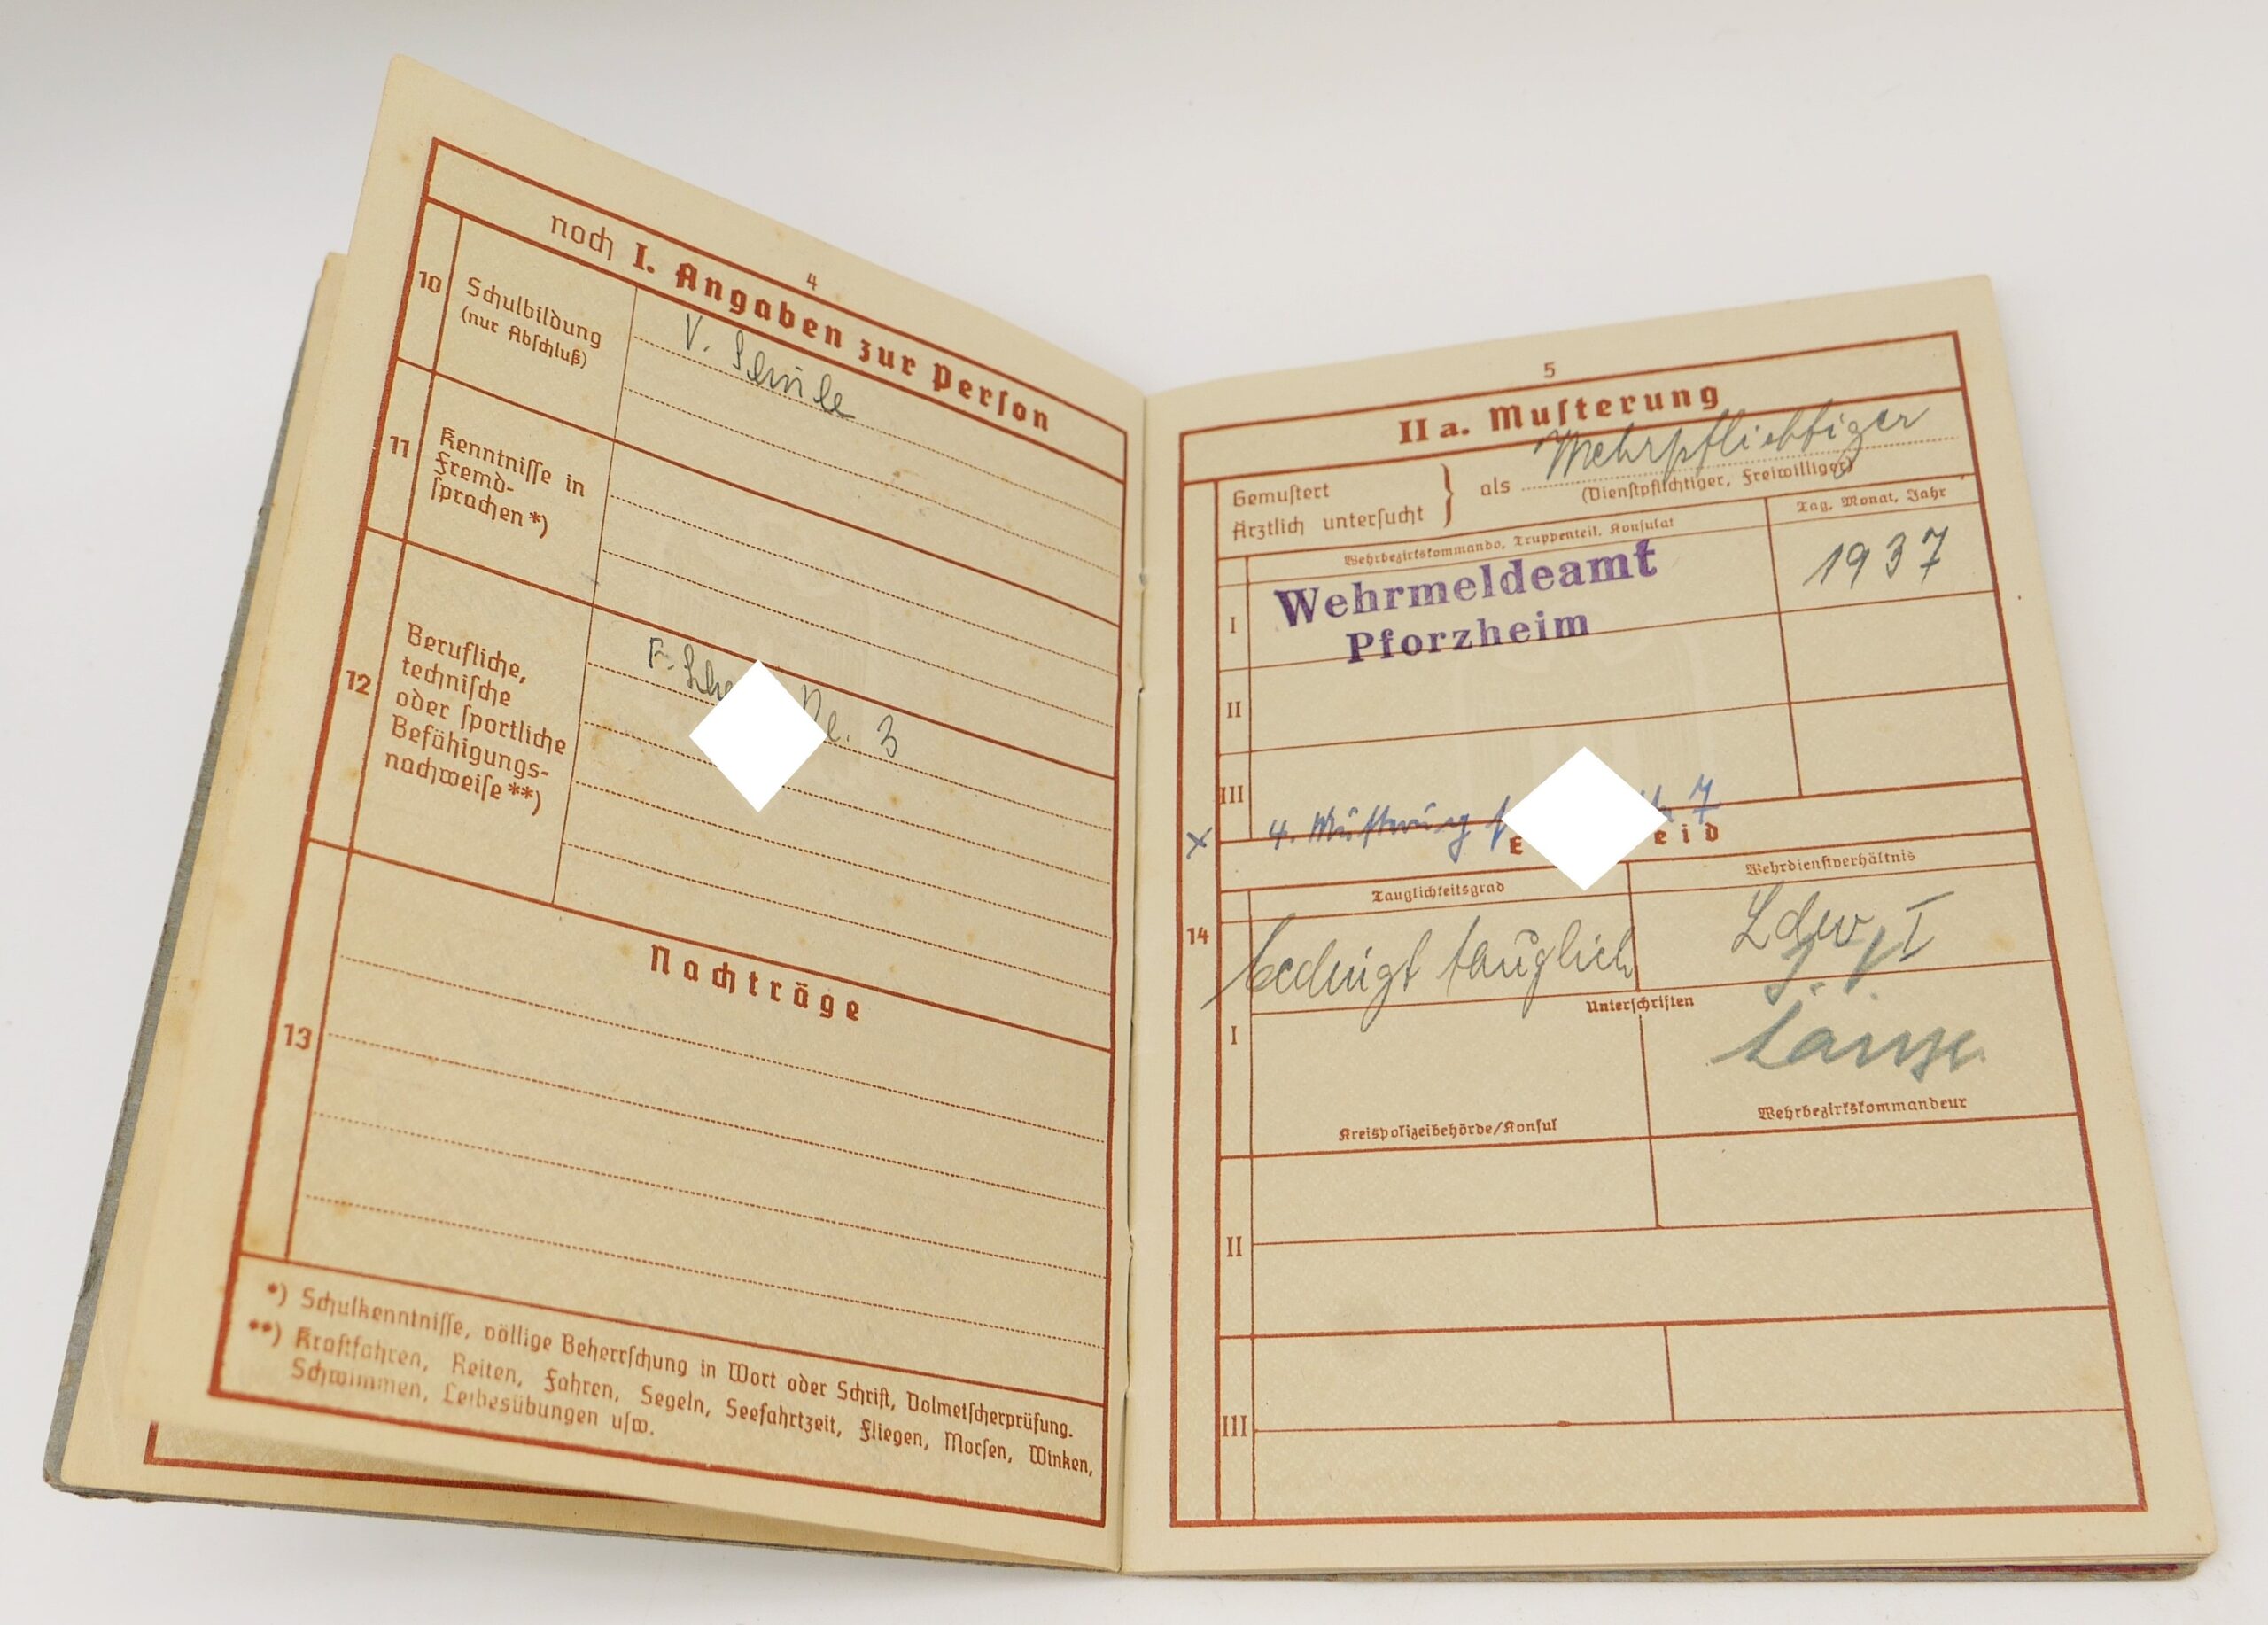 4
noch I. Angaben zur Person
10
Schulbildung
(nur Abschluß)
V. Schule
11
Kenntnisse in
Fremd-
sprachen *)
12
Berufliche,
technische
oder sportliche
Befähigungs-
nachweise **)
Kl. 3
13
Nachträge
*) Schulkenntnisse, völlige Beherrschung in Wort oder Schrift, Dolmetscherprüfung.
**) Kraftfahren, Reiten, Fahren, Segeln, Seefahrtzeit, Fliegen, Morsen, Winken,
Schwimmen, Leibesübungen usw.
5
II a. Musterung
Gemustert
Ärztlich untersucht } als Wehrpflichtiger
(Dienstpflichtiger, Freiwilliger)
Wehrbezirkskommando, Truppenteil, Konsulat
Tag, Monat, Jahr
I
Wehrmeldeamt
Pforzheim
1937
II
III
x 4. Musterung 7
E eid
14
Tauglichkeitsgrad
Wehrdienstverhältnis
bedingt tauglich
Ldw. I
I
Unterschriften
Kreispolizeibehörde/Konsul
Wehrbezirkskommandeur
II
III